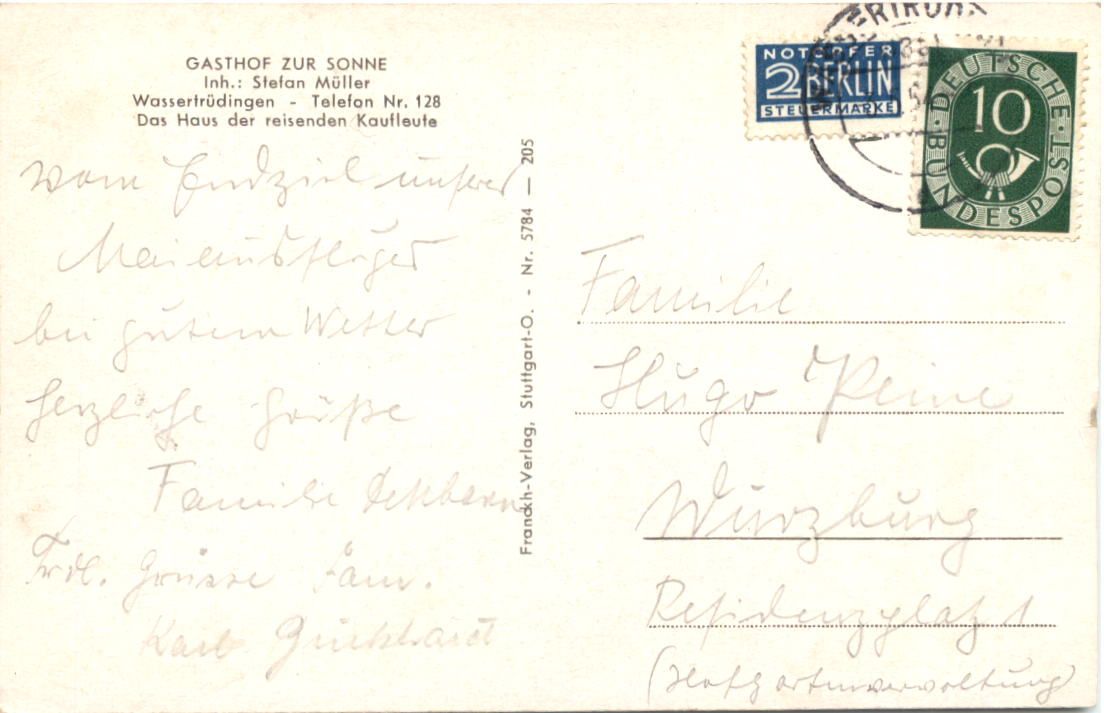 GASTHOF ZUR SONNE
Inh.: Stefan Müller
Wassertrüdingen - Telefon Nr. 128
Das Haus der reisenden Kaufleute
vom Endziel unserer
Maiausflüger
bei gutem Wetter
herzliche Grüße
Familie
Frdl. Grüsse Fam.
Karl
Franckh-Verlag, Stuttgart-O. - Nr. 5784 — 205
NOTOPFER
2 BERLIN
STEUERMARKE
DEUTSCHE BUNDESPOST
10
Familie
Hugo Peine
Würzburg
Residenzplatz 1
(Hofgartenverwaltung)